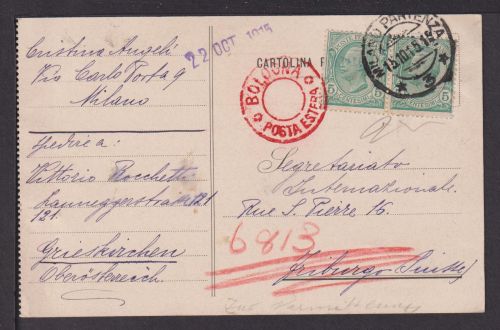 Cristina Angeli
Via Carlo Porta 9
Milano
spedire a:
Vittorio Rocchetti
121.
Grieskirchen
Oberösterreich
22 OCT 1915
CARTOLINA P
BOLOGNA
POSTA ESTERA
MILANO PARTENZA
15.10.15
5 CENTESIMI 5
5 CENTESIMI 5
Segretariato
Internazionale
Rue S. Pierre 16.
6813
Friburgo (Suisse)
Zur Vermittlung